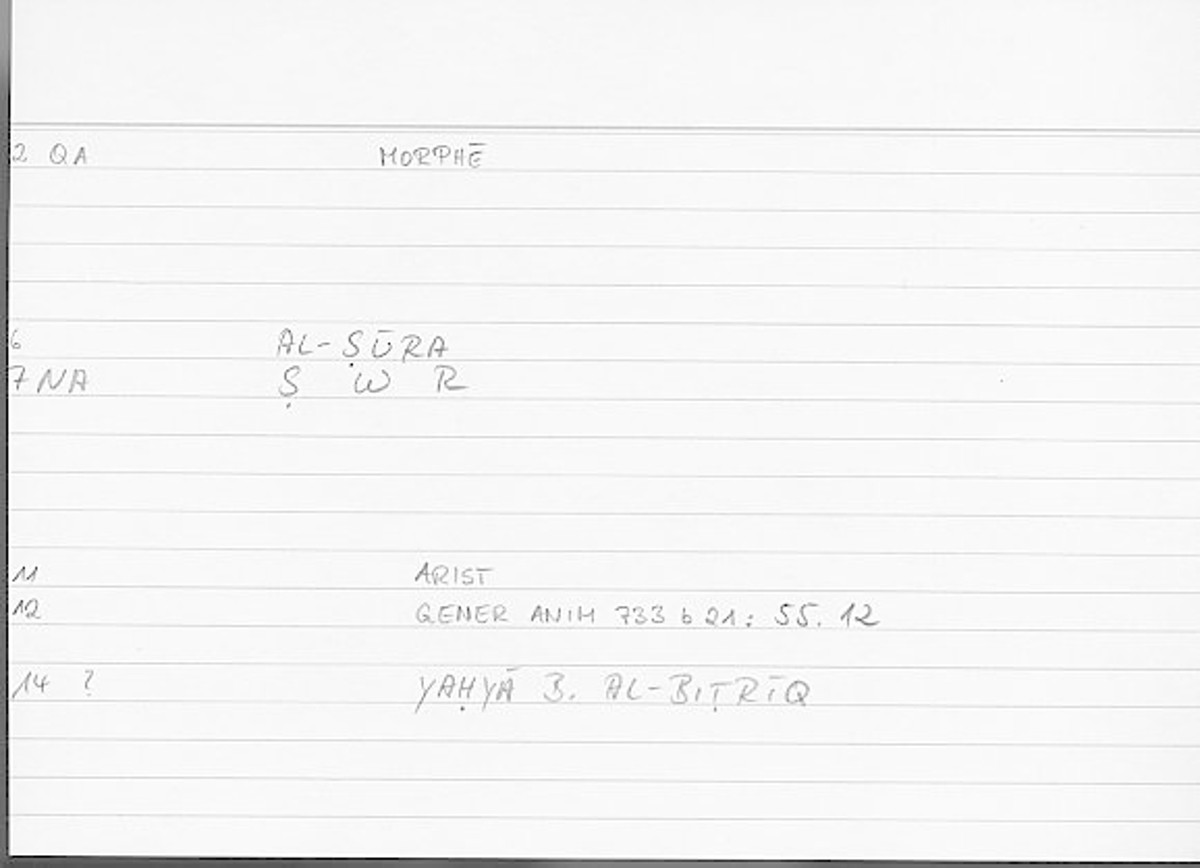 2 QA MORPHĒ
6 AL-ṢŪRA
7 NA Ṣ W R
11 ARIST
12 GENER ANIM 733 b 21: 55.12
14 ? YAḤYĀ B. AL-BIṬRĪQ